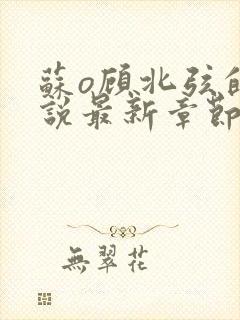 蘇o顧北弦的
說最新章節
無翠花